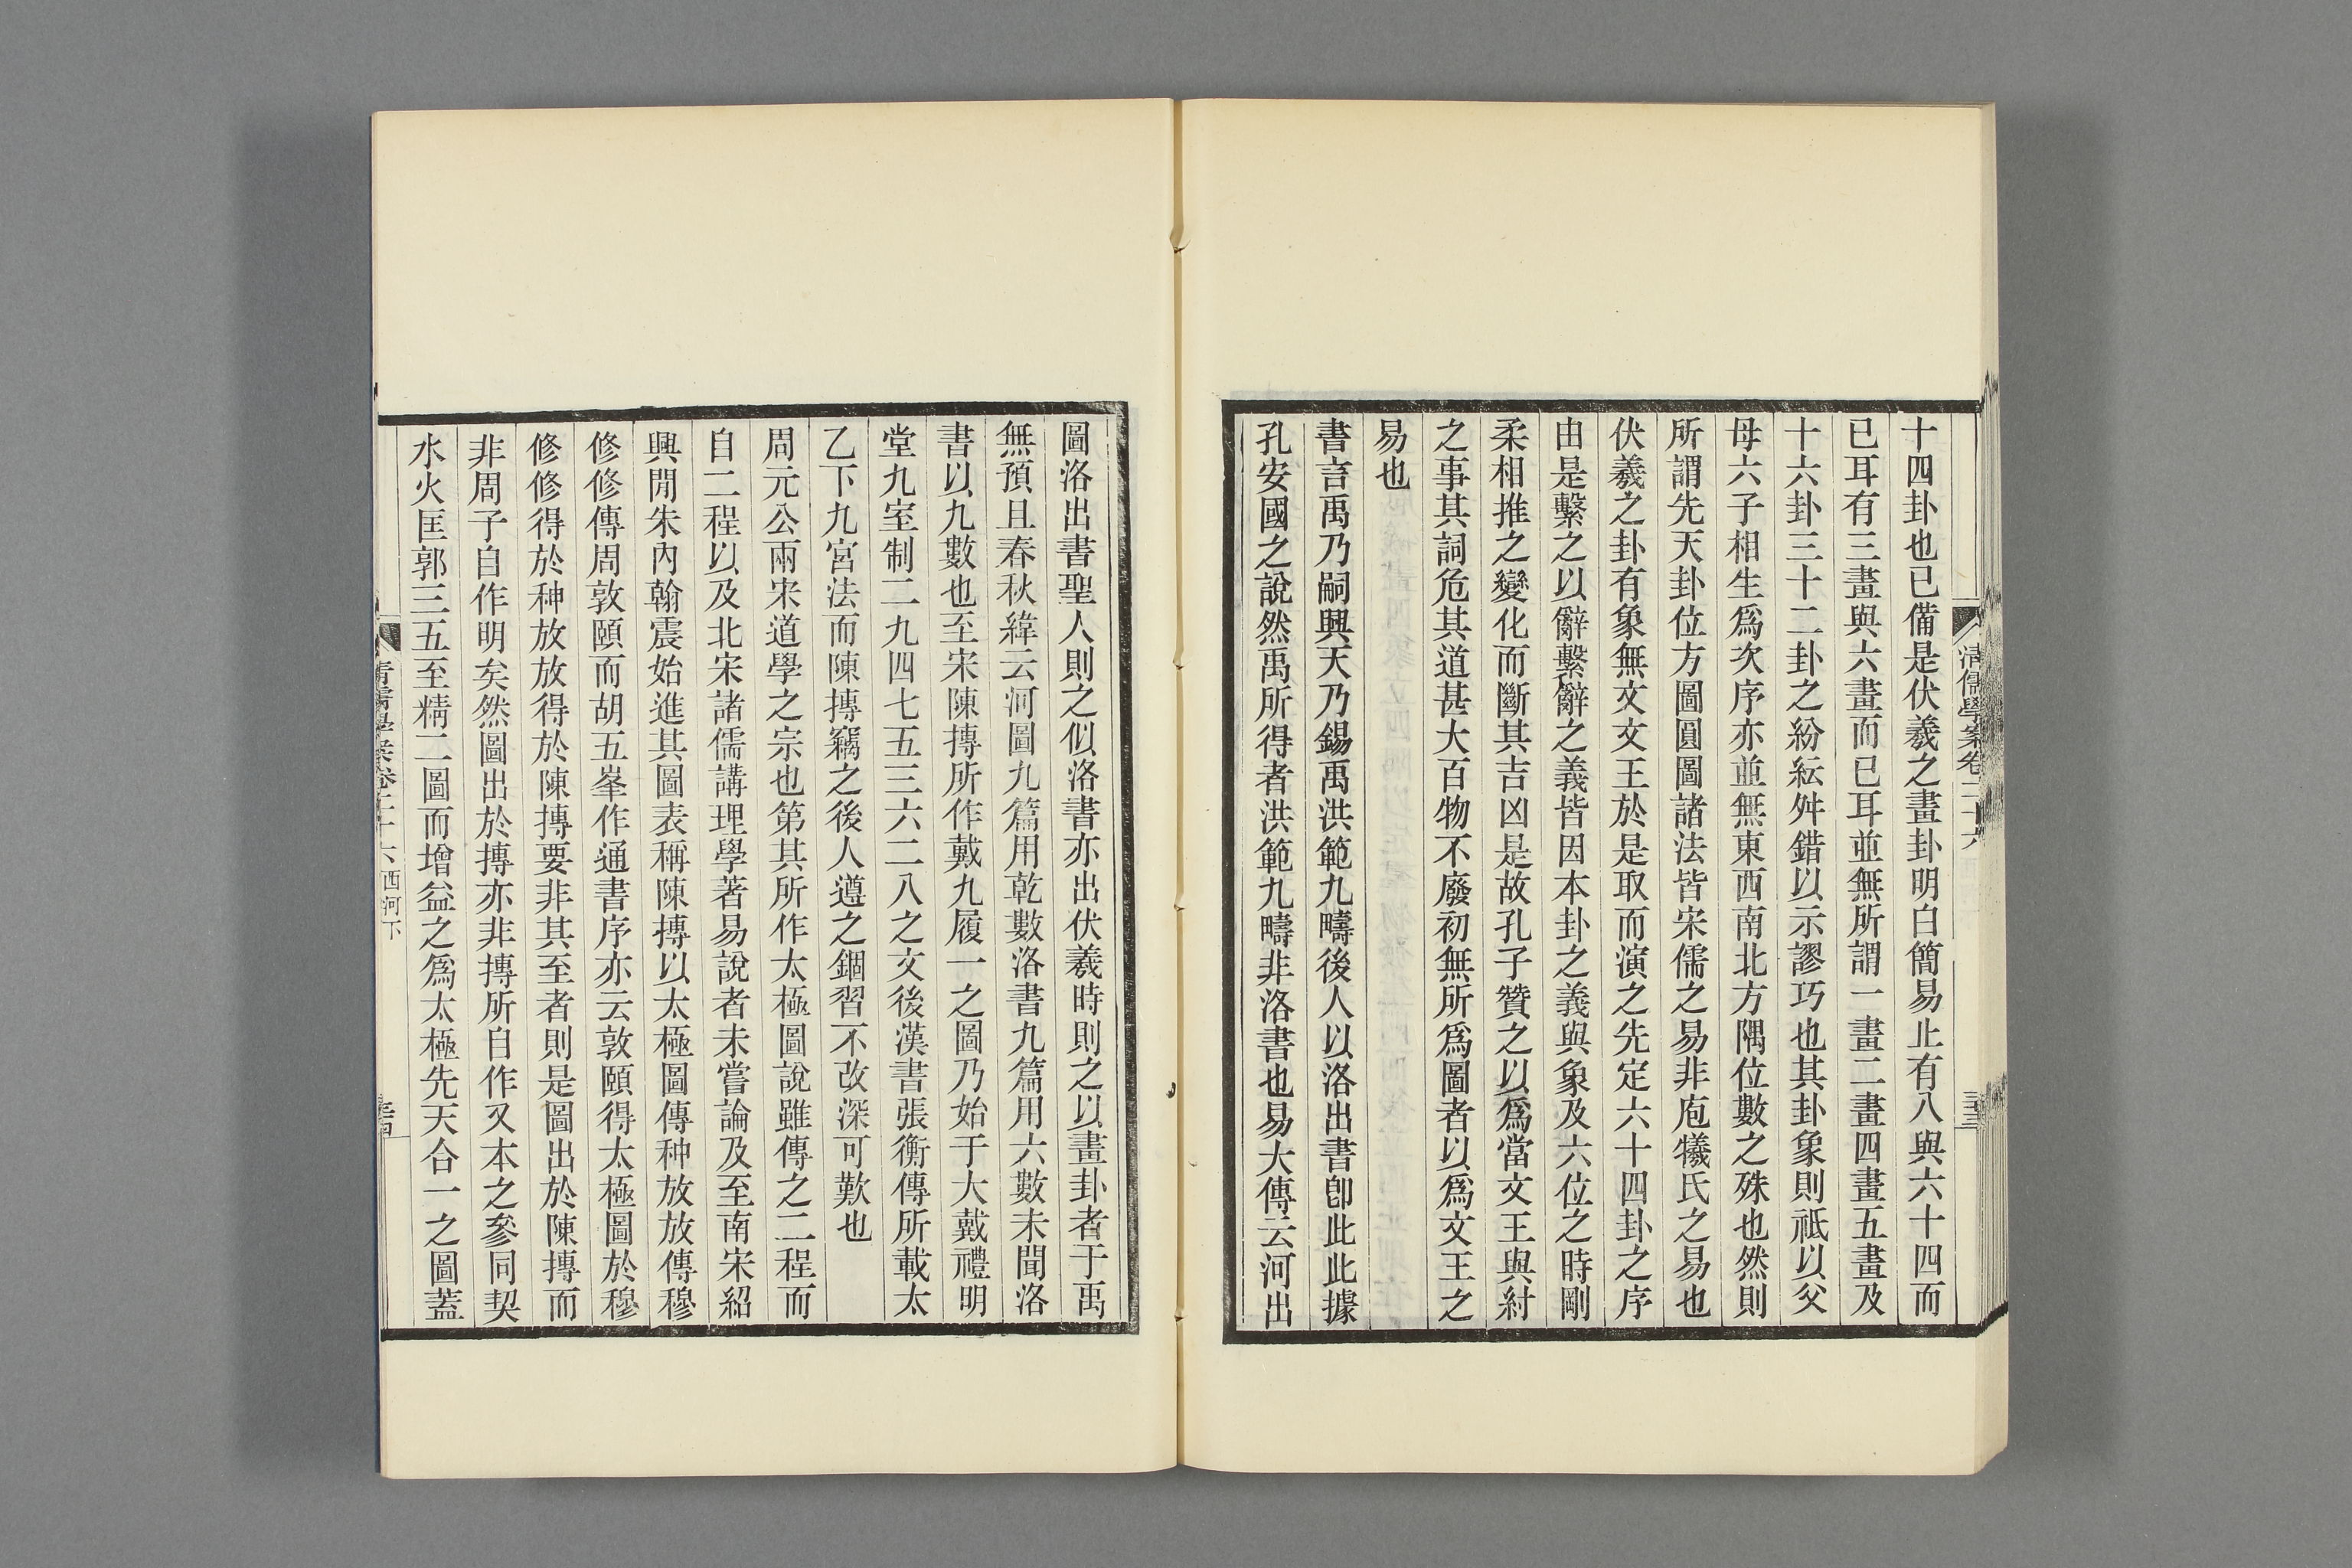 十四卦也已備是伏羲之畫卦明白簡易止有八與六十四而
已耳有三畫與六畫而已耳並無所謂一畫二畫四畫五畫及
十六卦三十二卦之紛紜舛錯以示謬巧也其卦象則祗以父
母六子相生爲次序亦並無東西南北方隅位數之殊也然則
所謂先天卦位方圖圓圖諸法皆宋儒之易非庖犧氏之易也
伏羲之卦有象無文文王於是取而演之先定六十四卦之序
由是繫之以辭繫辭之義皆因本卦之義與象及六位之時剛
柔相推之變化而斷其吉凶是故孔子贊之以爲當文王與紂
之事其詞危其道甚大百物不廢初無所爲圖者以爲文王之
易也
書言禹乃嗣興天乃錫禹洪範九疇後人以洛出書卽此此據
孔安國之說然禹所得者洪範九疇非洛書也易大傳云河出
清儒學案卷二十六
三十三
圖洛出書聖人則之似洛書亦出伏羲時則之以畫卦者于禹
無預且春秋緯云河圖九篇用乾數洛書九篇用六數未聞洛
書以九數也至宋陳摶所作戴九履一之圖乃始于大戴禮明
堂九室制二九四七五三六二八之文後漢書張衡傳所載太
乙下九宮法而陳摶竊之後人遵之錮習不改深可歎也
周元公兩宋道學之宗也第其所作太極圖說雖傳之二程而
自二程以及北宋諸儒講理學著易說者未嘗論及至南宋紹
興閒朱內翰震始進其圖表稱陳摶以太極圖傳种放放傳穆
修修傳周敦頤而胡五峯作通書序亦云敦頤得太極圖於穆
修修得於种放放得於陳摶要非其至者則是圖出於陳摶而
非周子自作明矣然圖出於摶亦非摶所自作又本之參同契
水火匡郭三五至精二圖而增益之爲太極先天合一之圖蓋
清儒學案卷二十六 西河下
三十四